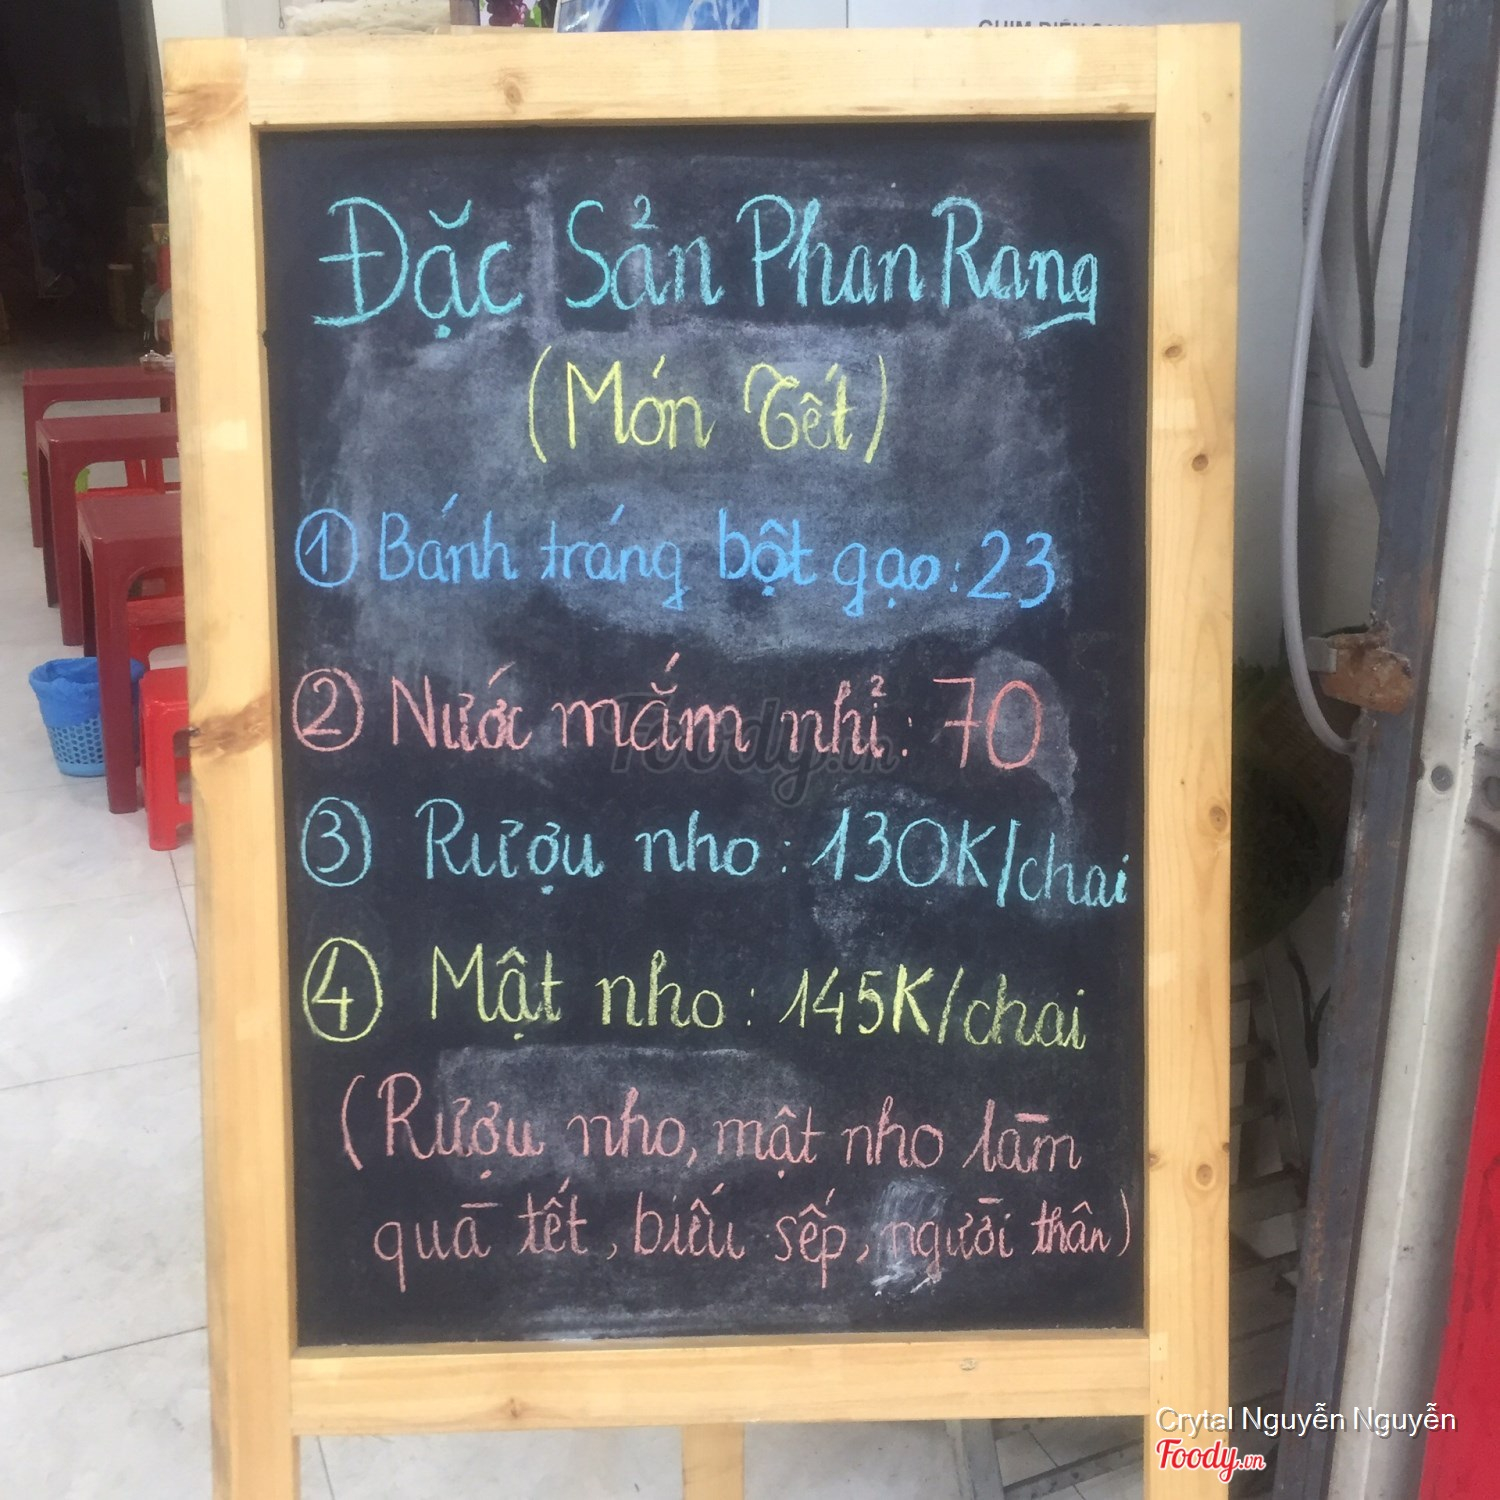 Đặc Sản Phan Rang
(Món Tết)
① Bánh tráng bột gạo: 23
② Nước mắm nhỉ: 70
③ Rượu nho: 130K/chai
④ Mật nho: 145K/chai
(Rượu nho, mật nho làm
quà tết, biếu sếp, người thân)
Foody.vn
Crytal Nguyễn Nguyễn
Foody.vn